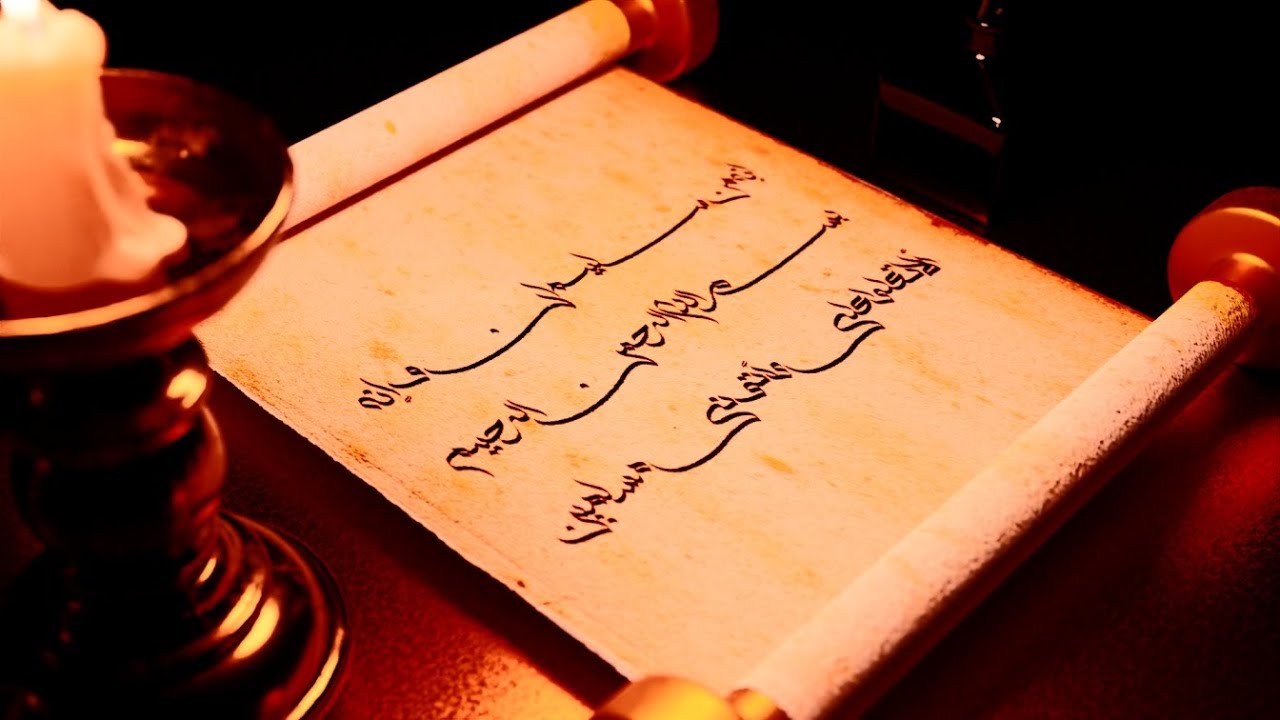 انه من سليمان وانه
بسم الله الرحمن الرحيم
الا تعلوا على واتونى مسلمين